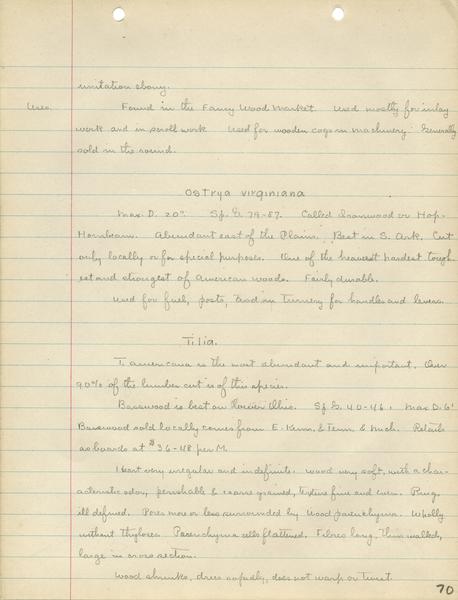 imitation ebony.
Uses. Found in the Fancy Wood Market. Used mostly for inlay
work and in scroll work Used for wooden cogs in machinery. Generally
sold in the round.
Ostrya virginiana
Max. D. 20". Sp. G. 79-87. Called Ironwood or Hop-
Hornbeam. Abundant east of the Plains. Best in S. Ark. Cut
only locally or for special purposes. One of the heaviest hardest tough
est and strongest of American woods. Fairly durable.
Used for fuel, posts, and in turnery for handles and levers.
Tilia.
T. americana is the most abundant and important. Over
90% of the lumber cut is of this species.
Basswood is best on Ohio. Sp. G. 40-46. Max D. 6'
Basswood sold locally comes from E. Kenn. & Tenn. & Mich. Retails
as boards at $36-48 per M.
Heart very irregular and indefinite. wood very soft, with a char-
acteristic odor, perishable & coarse grained, texture fine and even. Ring
ill defined. Pores more or less surrounded by wood parenchyma. Wholly
without Thyloses Parenchyma cells flattened. Fibres long, thin walled,
large in cross section.
Wood shrinks, dries rapidly, does not warp or twist.
70